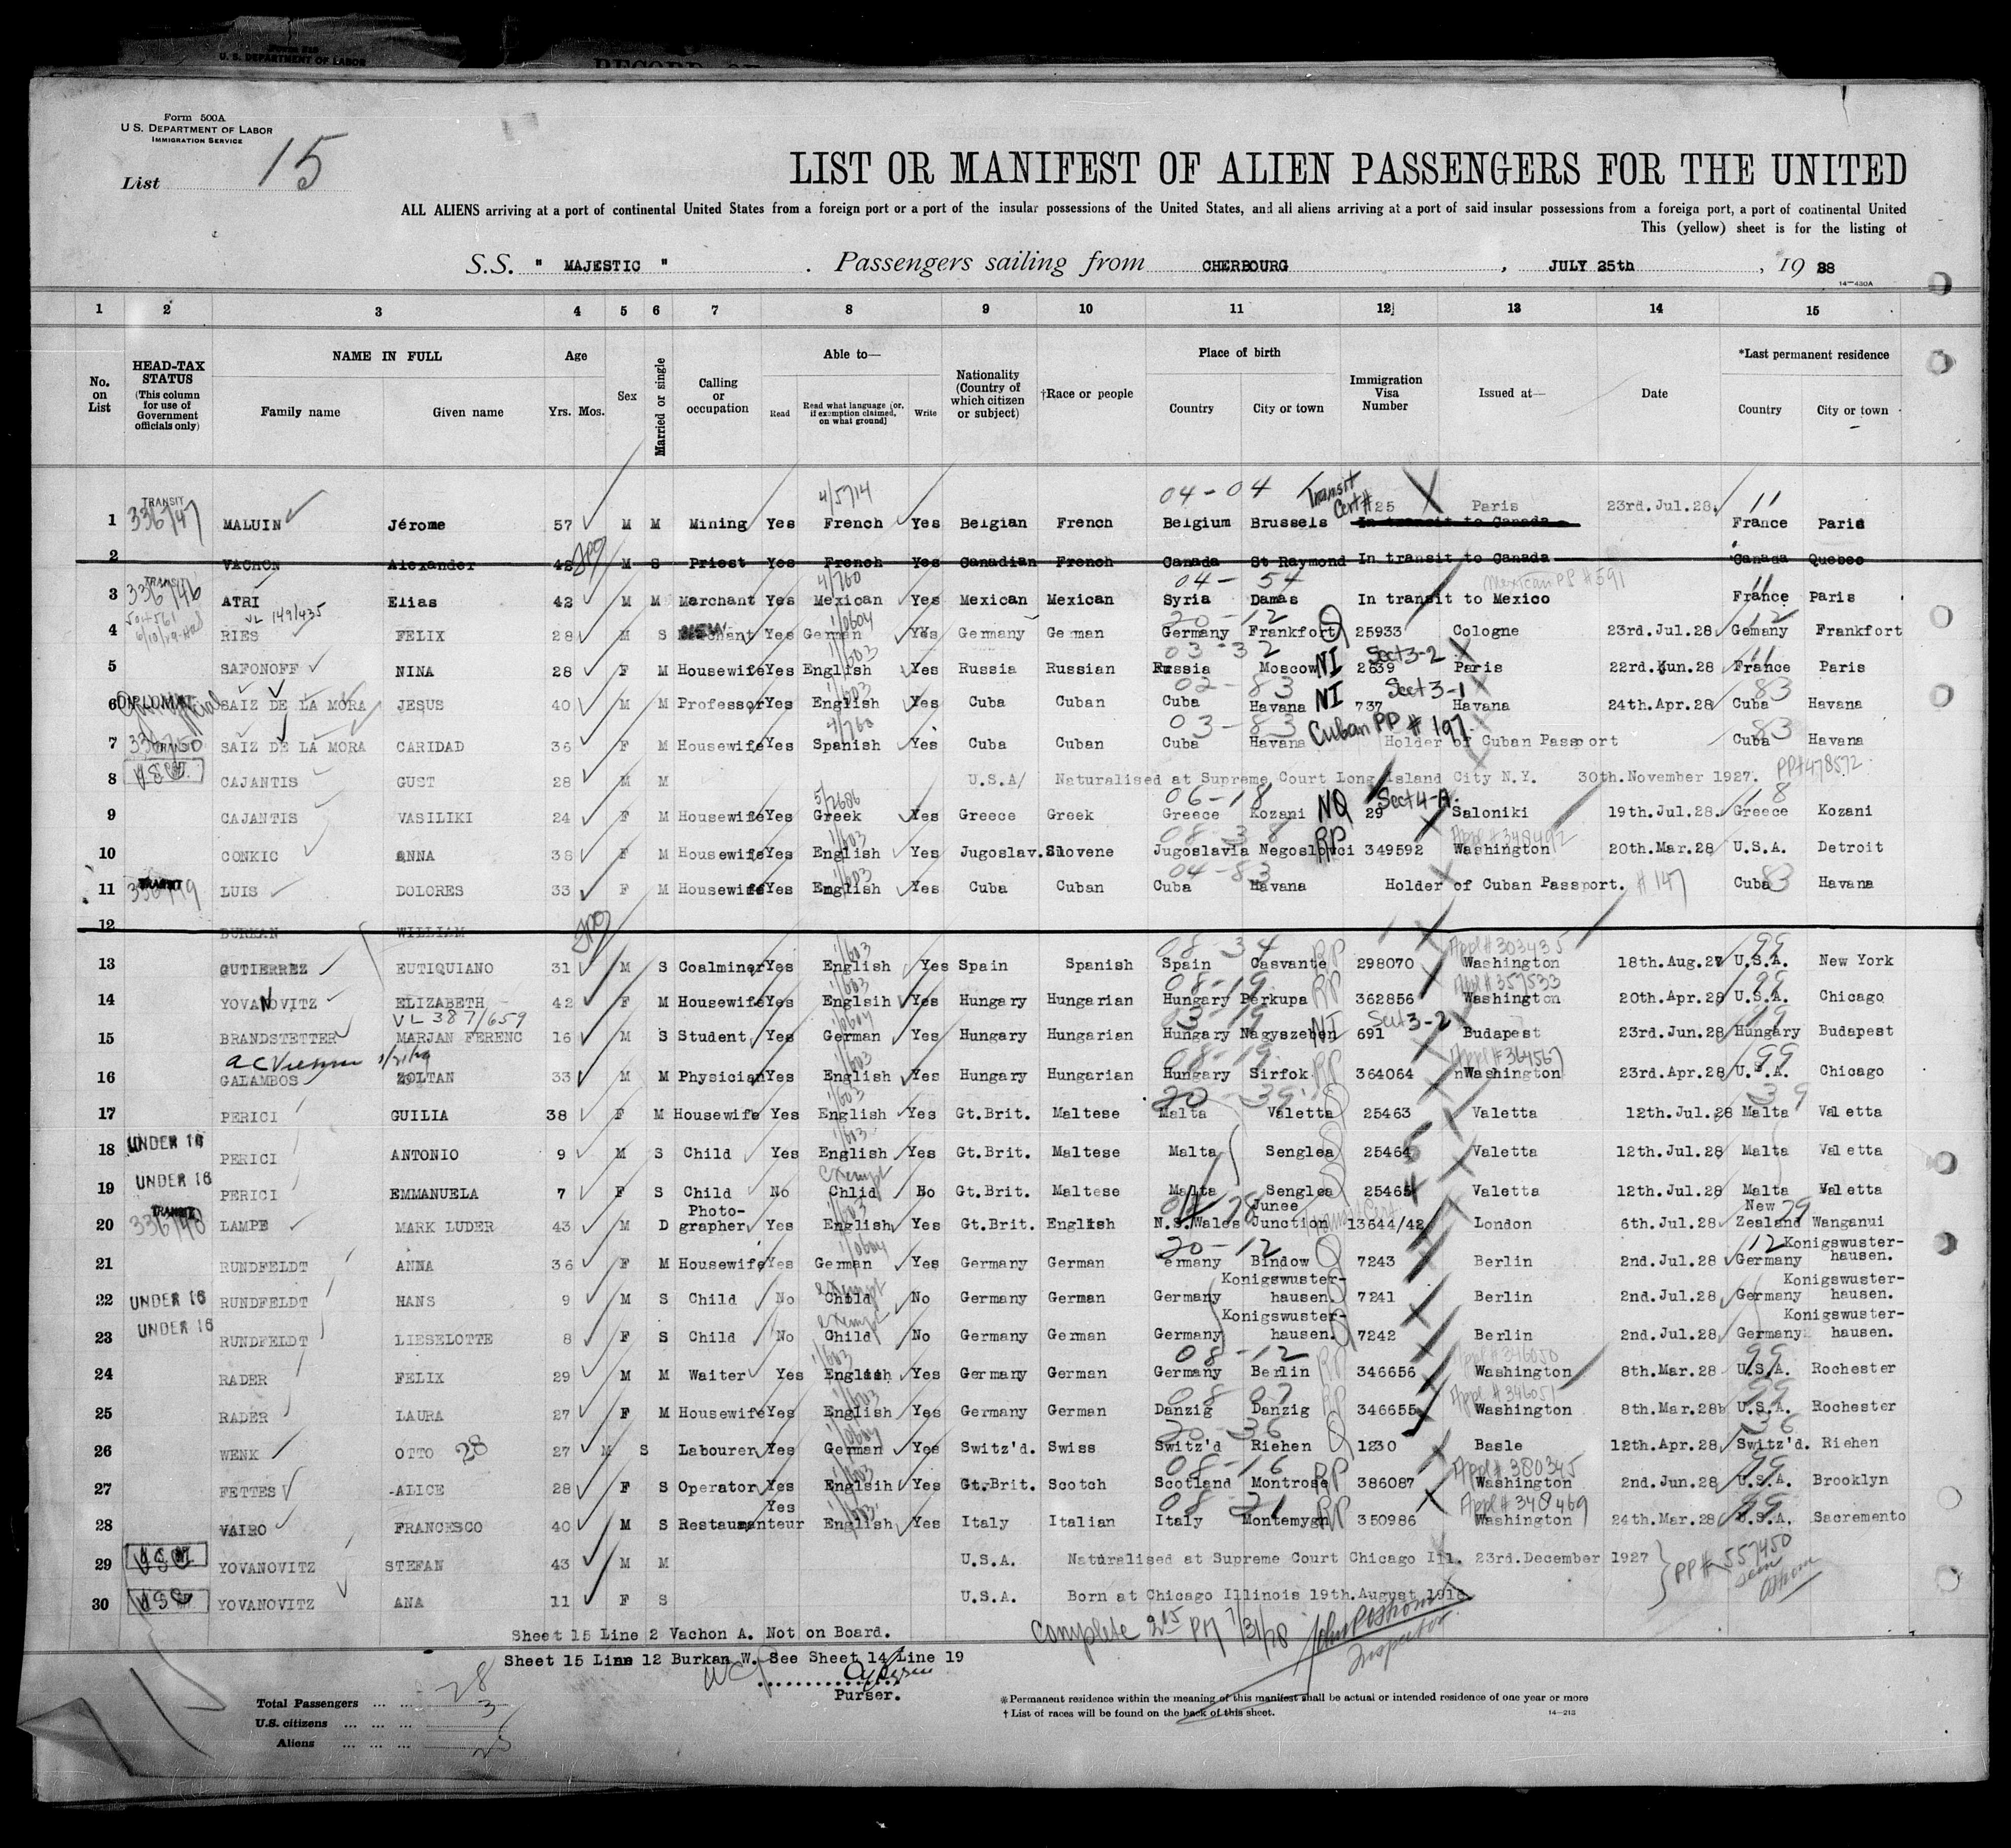 Form 500A
U. S. DEPARTMENT OF LABOR
IMMIGRATION SERVICE
U. S. DEPARTMENT OF LABOR
List 15
LIST OR MANIFEST OF ALIEN PASSENGERS FOR THE UNITED
ALL ALIENS arriving at a port of continental United States from a foreign port or a port of the insular possessions of the United States, and all aliens arriving at a port of said insular possessions from a foreign port, a port of continental United
This (yellow) sheet is for the listing of
S.S. " MAJESTIC " . Passengers sailing from CHERBOURG , JULY 25th , 19 28
14—430A
1 2 3 4 5 6 7 8 9 10 11 12 13 14 15
No. on List
HEAD-TAX STATUS (This column for use of Government officials only)
NAME IN FULL Family name Given name
Age Yrs. Mos.
Sex
Married or single
Calling or occupation
Able to— Read Read what language (or, if exemption claimed, on what ground) Write
Nationality (Country of which citizen or subject)
†Race or people
Place of birth Country City or town
Immigration Visa Number
Issued at—
Date
*Last permanent residence Country City or town
TRANSIT 4/5714 04-04 Transit Cert # 25 Paris 23rd.Jul.28. 11
1 336/47 MALUIN Jérome 57 M M Mining Yes French Yes Belgian French Belgium Brussels In transit to Canada France Paris
2 VACHON Alexander 42 M S Priest Yes French Yes Canadian French Canada St Raymond In transit to Canada Canada Quebec
TRANSIT 4/760 04-54 Mexican PP #591 11
3 336/46 ATRI Elias 42 M M Merchant Yes Mexican Yes Mexican Mexican Syria Damas In transit to Mexico France Paris
VL 149/435 1/0604 20-12 12
4 RIES FELIX 28 M S Yes German Yes Germany German Germany Frankfort Q 25933 Cologne 23rd.Jul.28 Gemany Frankfort
1/603 03-32 Sect 3-2 11
5 SAFONOFF NINA 28 F M Housewife Yes English Yes Russia Russian Russia Moscow NI 2639 Paris 22rd.Jun.28 France Paris
1/603 02-83 Sect 3-1 83
6 DIPLOMAT SAIZ DE LA MORA JESUS 40 M M Professor Yes English Yes Cuba Cuban Cuba Havana NI 737 Havana 24th.Apr.28 Cuba Havana
4/760 03-83 Cuban PP # 197. 83
7 TRANSIT SAIZ DE LA MORA CARIDAD 36 F M Housewife Yes Spanish Yes Cuba Cuban Cuba Havana Holder of Cuban Passport Cuba Havana
8 USC CAJANTIS GUST 28 M M U.S.A/ Naturalised at Supreme Court Long Island City N.Y. 30th.November 1927. PP#478572
5/2686 06-18 Sect 4-A. 18
9 CAJANTIS VASILIKI 24 F M Housewife Yes Greek Yes Greece Greek Greece Kozani NQ 29 Saloniki 19th.Jul.28. Greece Kozani
1/603 08-38 Appl #348492
10 CONKIC ANNA 38 F M Housewife Yes English Yes Jugoslav. Slovene Jugoslavia Negoslowci RP 349592 Washington 20th.Mar.28 U.S.A. Detroit
1/603 04-83 83
11 TRANSIT LUIS DOLORES 33 F M Housewife Yes English Yes Cuba Cuban Cuba Havana Holder of Cuban Passport. #147 Cuba Havana
12 BURKAN WILLIAM
1/603 08-34 Appl #303435 99
13 GUTIERREZ EUTIQUIANO 31 M S Coalminer Yes English Yes Spain Spanish Spain Casvante RP 298070 Washington 18th.Aug.27 U.S.A. New York
1/603 08-19 Appl #357533 99
14 YOVANOVITZ ELIZABETH 42 F M Housewife Yes Englsih Yes Hungary Hungarian Hungary Perkupa RP 362856 Washington 20th.Apr.28 U.S.A. Chicago
VL 387/659 1/0604 03-19 Sect 3-2 19
15 BRANDSTETTER MARJAN FERENC 16 M S Student Yes German Yes Hungary Hungarian Hungary Nagyszeben NI 691 Budapest 23rd.Jun.28 Hungary Budapest
1/603 08-19. Appl #364567 99
16 GALAMBOS ZOLTAN 33 M M Physician Yes English Yes Hungary Hungarian Hungary Sirfok RP 364064 Washington 23rd.Apr.28 U.S.A. Chicago
1/603 20-39 39
17 PERICI GUILIA 38 F M Housewife Yes English Yes Gt.Brit. Maltese Malta Valetta Q 25463 Valetta 12th.Jul.28 Malta Valetta
1/603
18 UNDER 16 PERICI ANTONIO 9 M S Child Yes English Yes Gt.Brit. Maltese Malta Senglea Q 25464 Valetta 12th.Jul.28 Malta Valetta
exempt
19 UNDER 16 PERICI EMMANUELA 7 F S Child No Chlid No Gt.Brit. Maltese Malta Senglea Q 25465 Valetta 12th.Jul.28 Malta Valetta
TRANSIT Photo- 1/603 Junee Transit Cert New 79
20 336/48 LAMPE MARK LUDER 43 M D grapher Yes English Yes Gt.Brit. English N.S.Wales Junction 13644/42 London 6th.Jul.28 Zealand Wanganui
1/0604 20-12 12 Konigswuster-
21 RUNDFELDT ANNA 36 F M Housewife Yes German Yes Germany German ermany Bindow Q 7243 Berlin 2nd.Jul.28 Germany hausen.
exempt Konigswuster- Konigswuster-
22 UNDER 16 RUNDFELDT HANS 9 M S Child No Child No Germany German Germany hausen. Q 7241 Berlin 2nd.Jul.28 Germany hausen.
exempt Konigswuster- Konigswuster-
23 UNDER 16 RUNDFELDT LIESELOTTE 8 F S Child No Child No Germany German Germany hausen. Q 7242 Berlin 2nd.Jul.28 Germany hausen.
1/603 08-12 Appl #346050 99
24 RADER FELIX 29 M M Waiter Yes English Yes Germany German Germany Berlin RP 346656 Washington 8th.Mar.28 U.S.A. Rochester
1/603 08 07 Appl #346051 99
25 RADER LAURA 27 F M Housewife Yes English Yes Germany German Danzig Danzig RP 346655 Washington 8th.Mar.28 U.S.A. Rochester
1/0604 20-36 36
26 WENK OTTO 28 27 M S Labourer Yes German Yes Switz'd. Swiss Switz'd Riehen Q 1230 Basle 12th.Apr.28 Switz'd. Riehen
1/603 08-16 Appl #380345 99
27 FETTES ALICE 28 F S Operator Yes Englsih Yes Gt.Brit. Scotch Scotland Montrose RP 386087 Washington 2nd.Jun.28 U.S.A. Brooklyn
Yes 1/603 08-21 Appl #348469 99
28 VAIRO FRANCESCO 40 M S Restauranteur English Yes Italy Italian Italy Montemygn RP 350986 Washington 24th.Mar.28 U.S.A. Sacremento
29 USC YOVANOVITZ STEFAN 43 M M U.S.A. Naturalised at Supreme Court Chicago Ill. 23rd.December 1927 PP# 557450
30 USC YOVANOVITZ ANA 11 F S U.S.A. Born at Chicago Illinois 19th.August 1916 seen
Sheet 15 Line 2 Vachon A. Not on Board. Complete 2 15 PM 7/31/28
Sheet 15 Line 12 Burkan W. See Sheet 14 Line 19 Inspector
Purser.
Total Passengers ... ... 28
U.S. citizens ... ... ... 3
Aliens ... ... ... 25
*Permanent residence within the meaning of this manifest shall be actual or intended residence of one year or more
† List of races will be found on the back of this sheet.
14—213